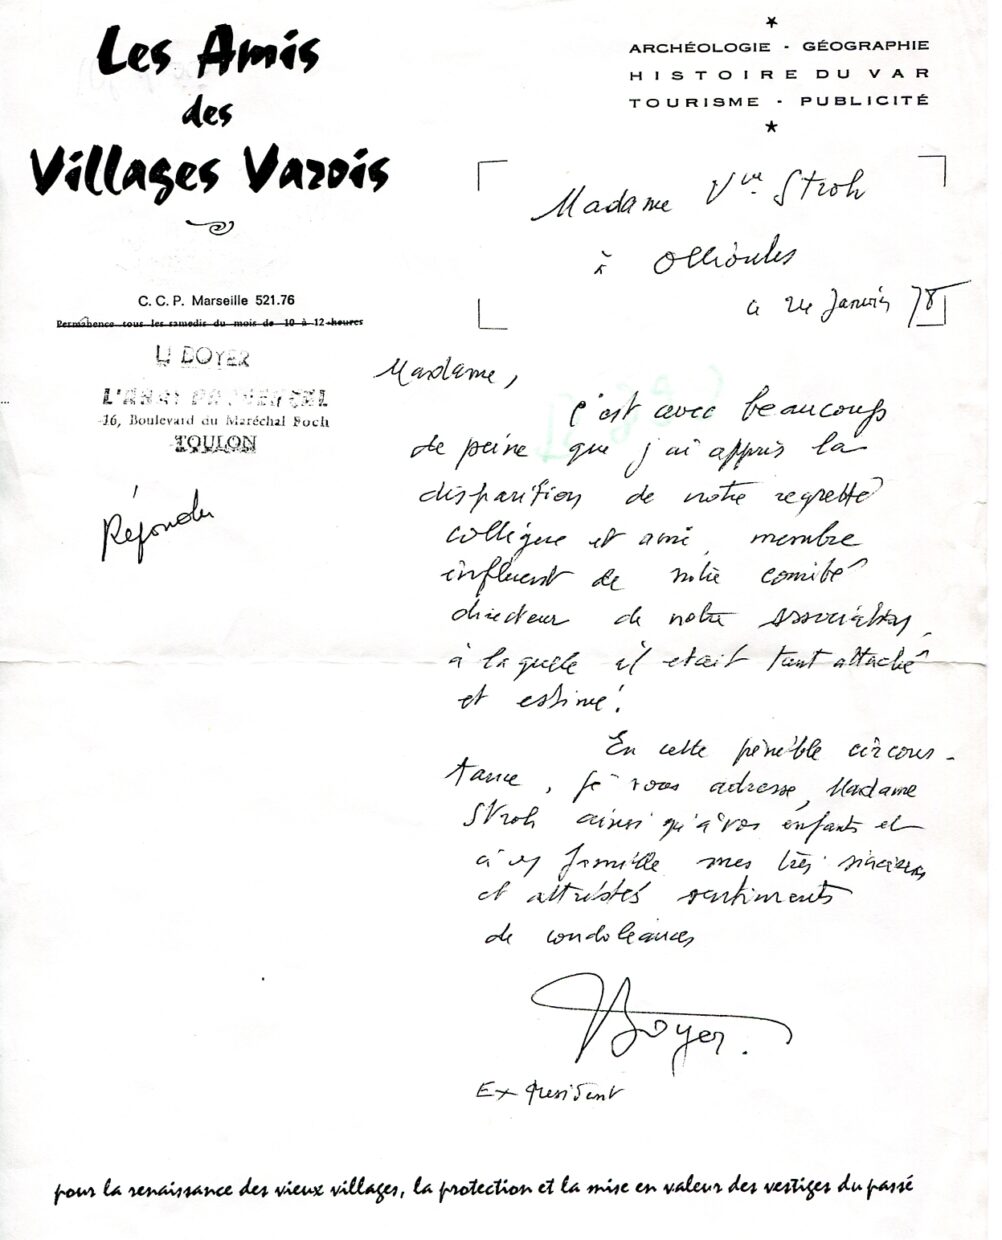 Les Amis
des
Villages Varois
C. C. P. Marseille 521.76
Permanence tous les samedis du mois de 10 à 12 heures
BOYER
16, Boulevard du Maréchal Foch
TOULON
Répondu
ARCHÉOLOGIE - GÉOGRAPHIE
HISTOIRE DU VAR
TOURISME - PUBLICITÉ
Madame Vve Stroh
à Ollioules
a 24 Janvier 78
Madame,
C'est avec beaucoup
de peine que j'ai appris la
disparition de notre regretté
collègue et ami, membre
influent de notre comité
directeur de notre association,
à laquelle il etait tant attaché
et estimé!
En cette pénible circons-
tance, je vous adresse, Madame
Stroh ainsi qu'à vos enfants et
à famille mes très sincères
et attristés sentiments
de condoléances
Boyer.
Ex President
pour la renaissance des vieux villages, la protection et la mise en valeur des vestiges du passé